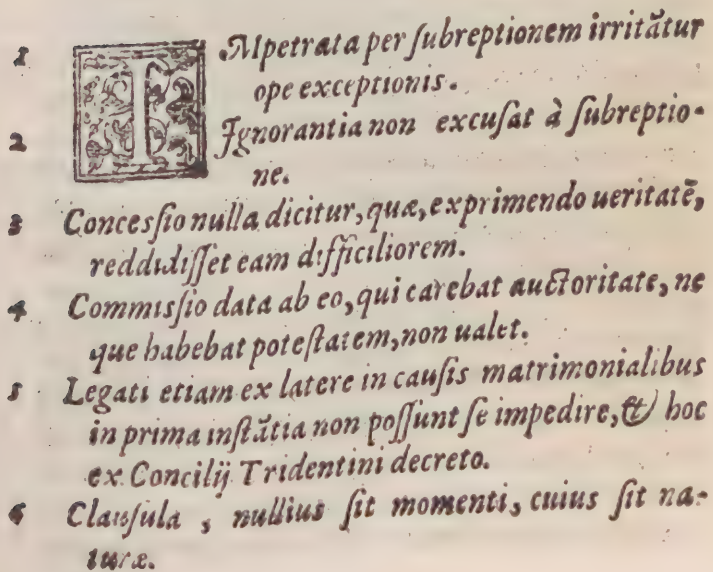 1 IMpetrata per ſubreptionem irritãtur
ope exceptionis.
2 Ignorantia non excuſat à ſubreptio-
ne.
3 Conceſsio nulla dicitur, quæ, exprimendo ueritatẽ,
reddidiſſet eam difficiliorem.
4 Commiſsio data ab eo, qui carebat auctoritate, ne
que habebat poteſtatem, non ualet.
5 Legati etiam ex latere in cauſis matrimonialibus
in prima inſtãtia non poſſunt ſe impedire, & hoc
ex Concilij Tridentini decreto.
6 Clauſula, nullius ſit momenti, cuius ſit na-
turæ.